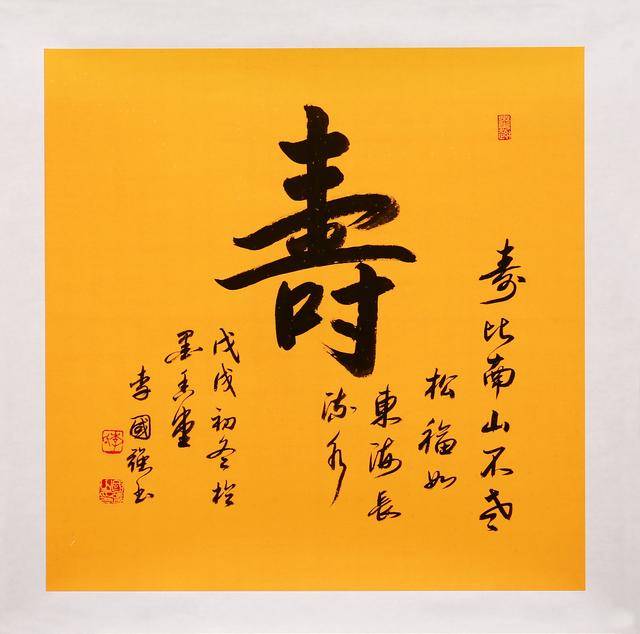 壽
寿比南山不老
松福如
東海長
流水
戊戌初冬於
墨香堂
李國强书